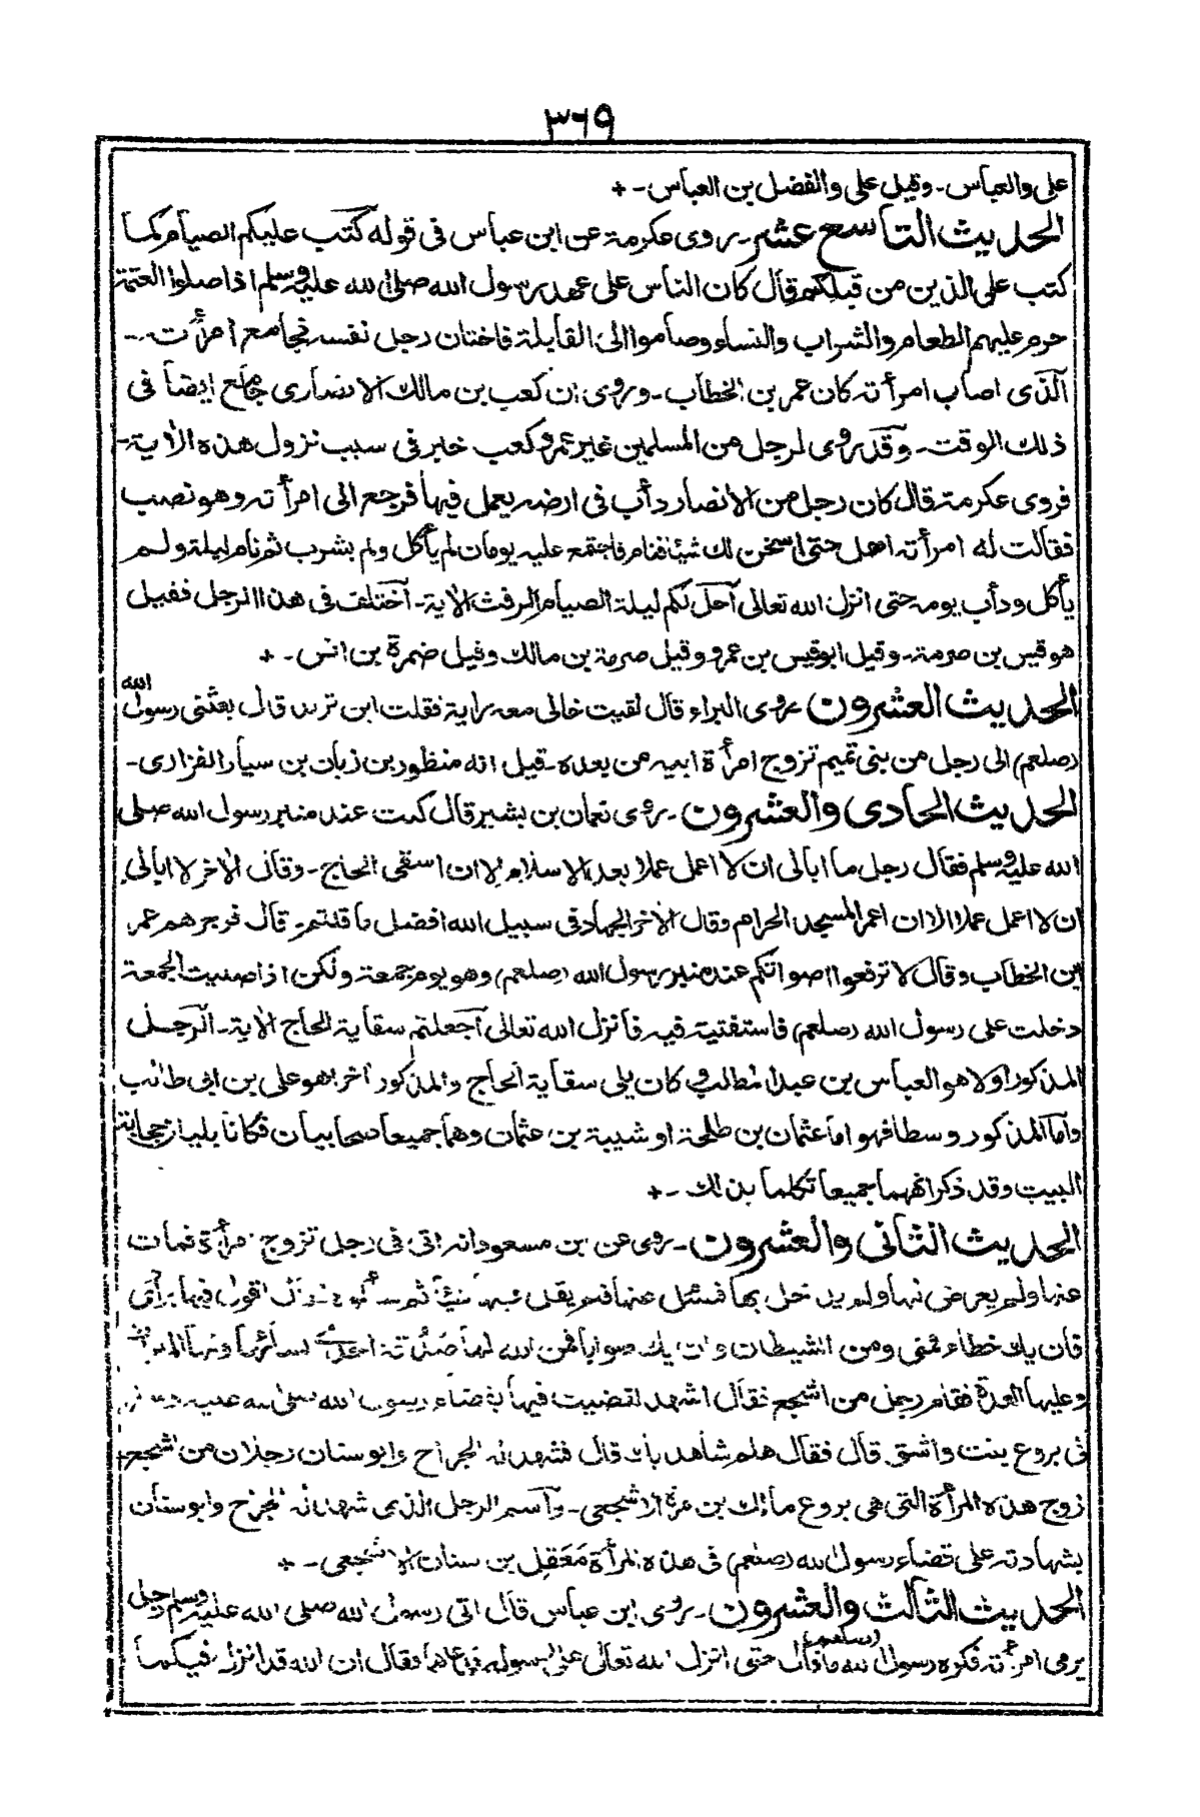 ٣٦٩
على والعباس - وقيل على والفضل بن العباس - +
الحديث التاسع عشر - روى عكرمة عن ابن عباس فى قوله كتب عليكم الصيام كما
كتب على الذين من قبلكم قال كان الناس على عهد رسول الله صلى الله عليه وسلم اذا صلوا العتمة
حرم عليهم الطعام والشراب والنساء وصاموا الى القابلة فاختان رجل نفسه فجامع امرأته -
الذى اصاب امرأته كان عمر بن الخطاب - وروى ان كعب بن مالك الانصارى جامع ايضا فى
ذلك الوقت - وقد روى لرجل من المسلمين غير عمر وكعب خبر فى سبب نزول هذه الاية -
فروى عكرمة قال كان رجل من الانصار دأب فى ارضه يعمل فيها فرجع الى امرأته وهو نصب
فقالت له امرأته امهل حتى اسخن لك شيئا فنام فاجتمع عليه يومان لم يأكل ولم يشرب ثم نام ليلة ولم
يأكل ودأب يومه حتى انزل الله تعالى احل لكم ليلة الصيام الرفث الاية - اختلف فى هذا الرجل فقيل
هو قيس بن صرمة - وقيل ابو قيس بن عمرو وقيل صرمة بن مالك وقيل ضمرة بن انس - +
الحديث العشرون روى البراء قال لقيت خالى معه راية فقلت اين تريد قال بعثنى رسول الله
(صلعم) الى رجل من بنى تميم تزوج امرأة ابيه من بعده - قيل انه منظور بن زبان بن سيار الفزارى -
الحديث الحادى والعشرون - روى نعمان بن بشير قال كنت عند منبر رسول الله صلى
الله عليه وسلم فقال رجل ما ابالى ان لا اعمل عملا بعد الاسلام الا ان اسقى الحاج - وقال الاخر لا ابالى
ان لا اعمل عملا الا ان اعمر المسجد الحرام وقال الاخر الجهاد فى سبيل الله افضل ما قلتم قال فزجرهم عمر
بن الخطاب وقال لا ترفعوا اصواتكم عند منبر رسول الله (صلعم) وهو يوم جمعة ولكن اذا صليت الجمعة
دخلت على رسول الله (صلعم) فاستفتيته فيه فانزل الله تعالى اجعلتم سقاية الحاج الاية - الرجل
المذكور اولا هو العباس بن عبد المطلب وكان يلى سقاية الحاج والمذكور اخرا هو على بن ابى طالب
واما المذكور وسطا فهو اما عثمان بن طلحة او شيبة بن عثمان وهما جميعا صحابيان فكانا يليان حجابة
البيت وقد ذكر انهما جميعا تكلما بذلك - +
الحديث الثانى والعشرون - روى عن ابن مسعود انه اتى فى رجل تزوج امرأة فمات
عنها ولم يفرض لها ولم يدخل بها فسئل عنها فلم يقل فيها شيئا ثم قال اقول فيها برأى
فان يك خطاء فمنى ومن الشيطان وان يك صوابا فمن الله لها صدقة احدى نسائها ولها الميراث
وعليها العدة فقام رجل من اشجع فقال اشهد لقضيت فيها بقضاء رسول الله صلى الله عليه وسلم
فى بروع بنت واشق قال فقال هلم شاهداك قال فشهد له الجراح وابو سنان رجلان من اشجع
زوج هذه المرأة التى هى بروع مالك بن مرة الاشجعى - واسم الرجل الذى شهد له الجراح وابو سنان
بشهادته على قضاء رسول الله (صلعم) فى هذه المرأة معقل بن سنان الاشجعى - +
الحديث الثالث والعشرون - روى ابن عباس قال اتى رسول الله صلى الله عليه وسلم رجل
يرمى امرأته فكره رسول الله (صلعم) ما قال حتى انزل الله تعالى على رسوله فدعاهما فقال ان الله قد انزل فيكما